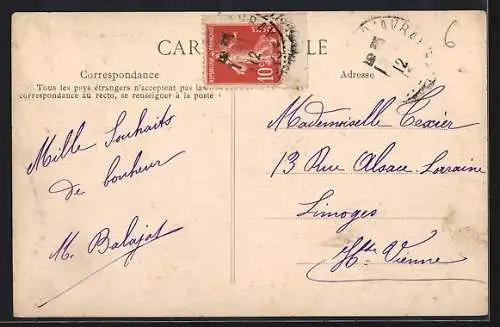 CAR
LE
RÉPUBLIQUE FRANÇAISE
10c
D'AVRAY
12
6
Correspondance
Tous les pays étrangers n'acceptent pas la
correspondance au recto, se renseigner à la poste
Adresse
Mille Souhaits
de bonheur
M. Balajat
Mademoiselle Texier
13 Rue Alsace-Lorraine
Limoges
Hte Vienne